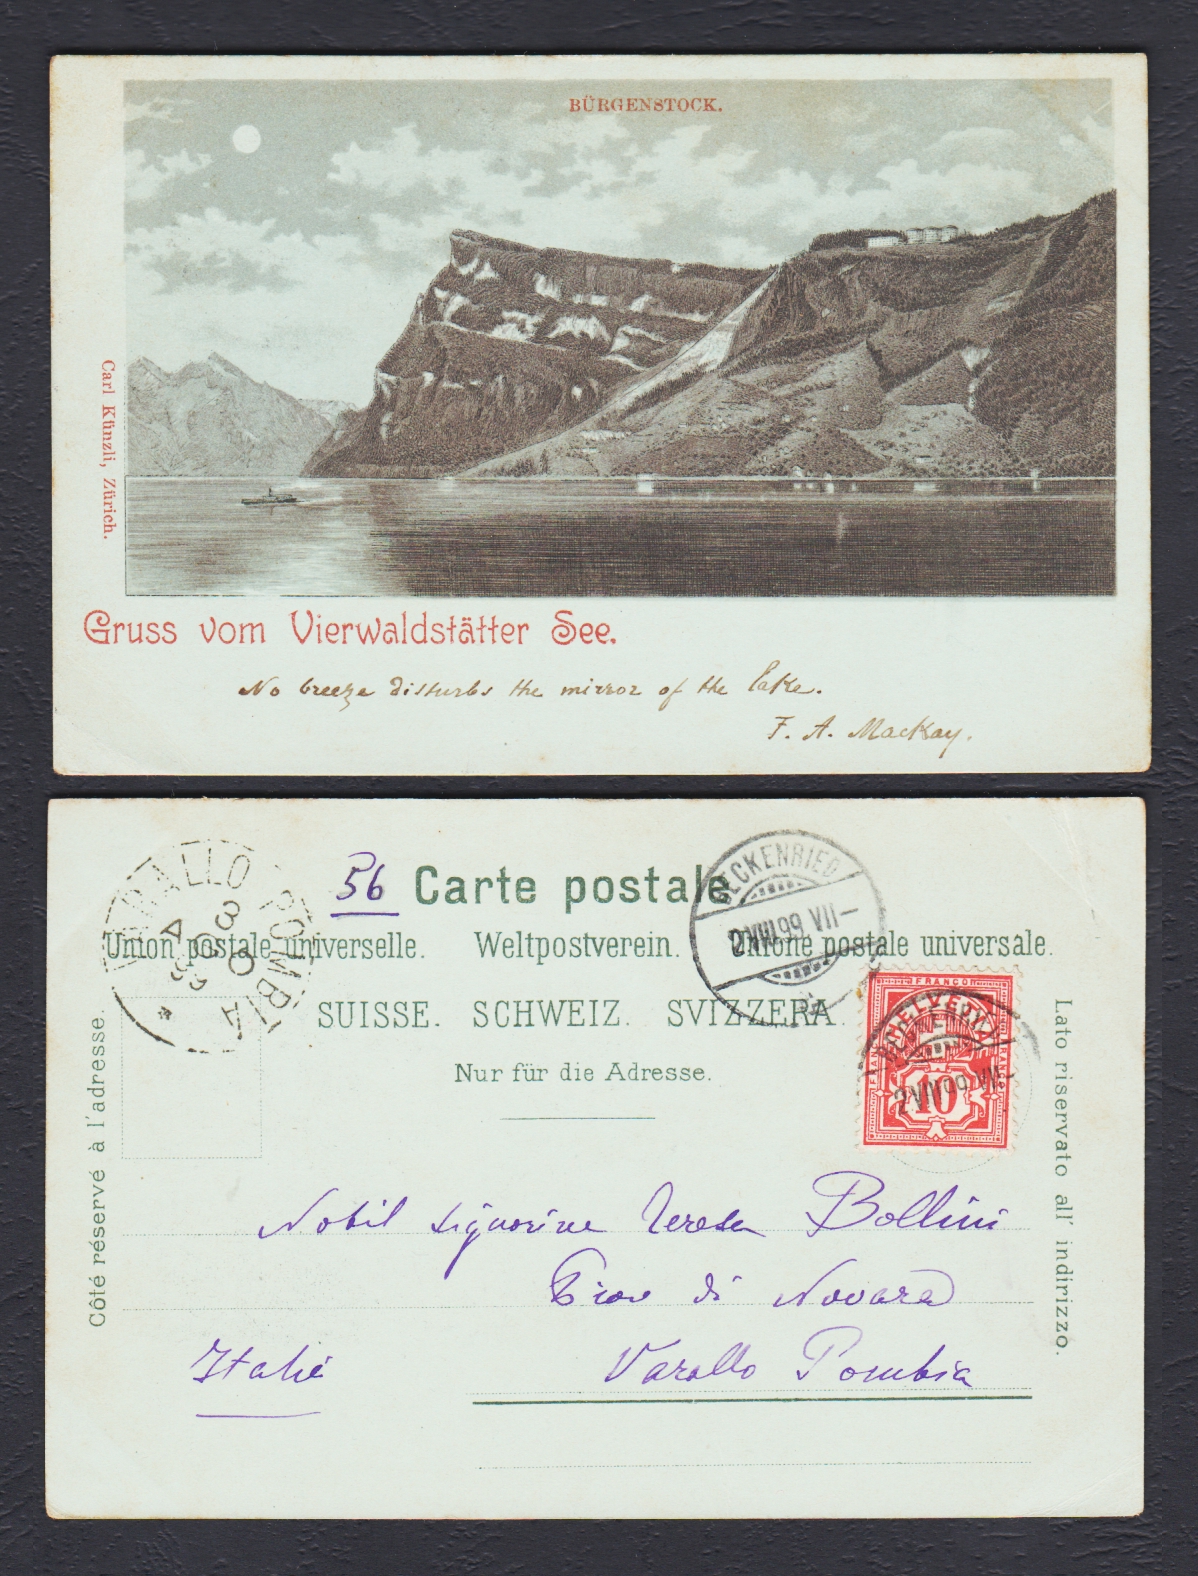 BÜRGENSTOCK.
Carl Künzli, Zürich.
Gruss vom Vierwaldstätter See.
No breeze disturbs the mirror of the lake.
F. A. MacKay.
VARALLO POMBIA
3
AGO
99
56
Carte postale
BECKENRIED
2 VIII 99 VII—
Union postale universelle. Weltpostverein. Unione postale universale.
SUISSE. SCHWEIZ. SVIZZERA.
Nur für die Adresse.
FRANCO
HELVETIA
10
FRANCO
FRANCO
BECKENRIED
2 VIII 99 VII—
Côté réservé à l'adresse.
Lato riservato all' indirizzo.
Nobil signorina Teresa Bollini
di Novara
Varallo Pombia
Italie